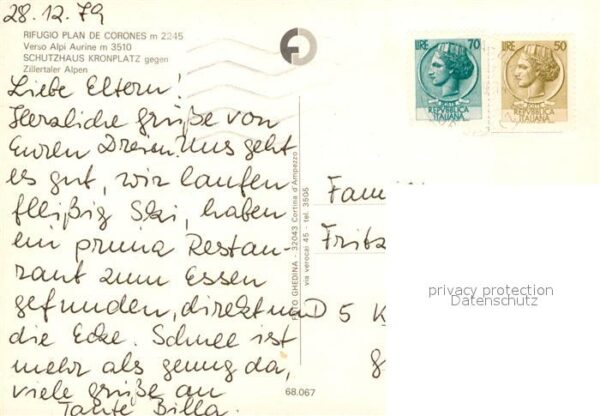 28.12.79
RIFUGIO PLAN DE CORONES m 2245
Verso Alpi Aurine m 3510
SCHUTZHAUS KRONPLATZ gegen
Zillertaler Alpen
Liebe Eltern!
Herzliche Grüße von
Euren Dreien. Uns geht
es gut, wir laufen
fleißig Ski, haben
ein prima Restau-
rant zum Essen
gefunden, direkt um
die Ecke. Schnee ist
mehr als genug da,
viele Grüße an
Tante Billa.
FOTO GHEDINA - 32043 Cortina d'Ampezzo
via verocai 45 - tel. 3505
68.067
LIRE 70
REPVBBLICA
ITALIANA
LIRE 50
REPVBBLICA
ITALIANA
Fam
Fritz
D 5 K
privacy protection
Datenschutz